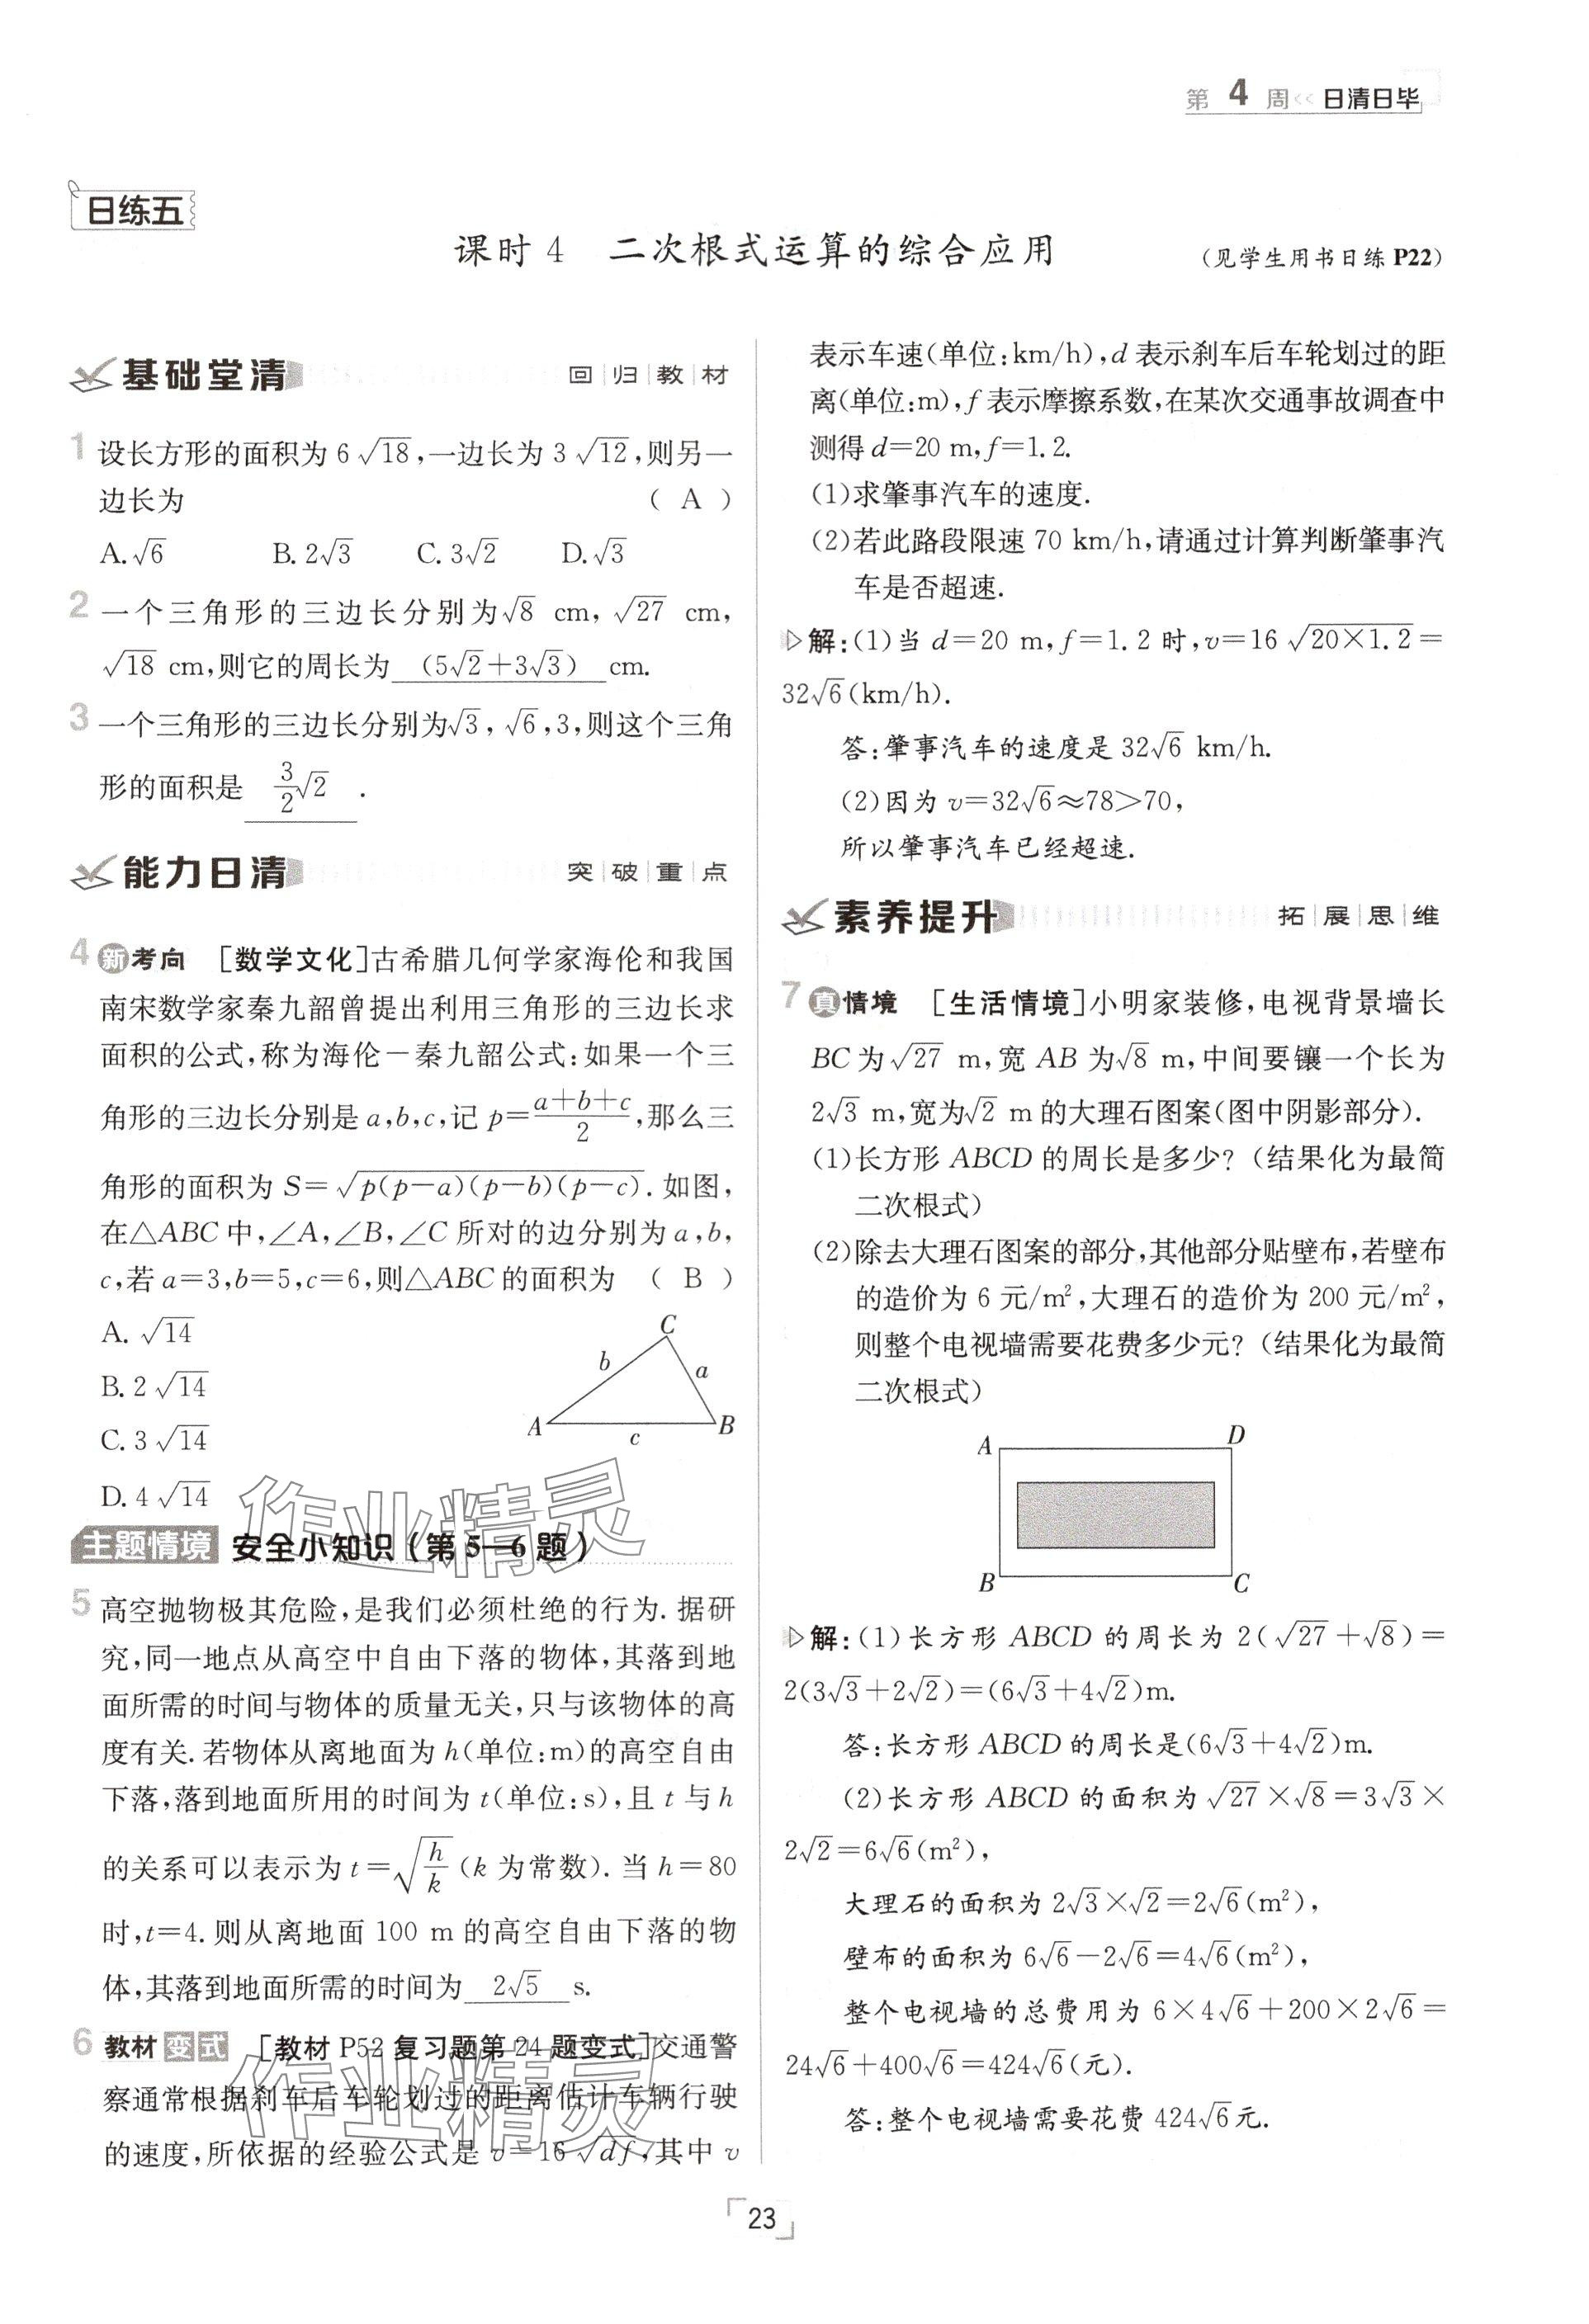 第 4 周 << 日清日毕
日练五
课时 4　二次根式运算的综合应用　(见学生用书日练 P22)
基础堂清　回|归|教|材
1 设长方形的面积为 6√18,一边长为 3√12,则另一
边长为　( A )
A.√6　B. 2√3　C. 3√2　D.√3
2 一个三角形的三边长分别为√8 cm, √27 cm,
√18 cm,则它的周长为 (5√2+3√3) cm.
3 一个三角形的三边长分别为√3, √6,3,则这个三角
形的面积是 3/2√2 .
能力日清　突|破|重|点
4 新考向 [数学文化]古希腊几何学家海伦和我国
南宋数学家秦九韶曾提出利用三角形的三边长求
面积的公式,称为海伦－秦九韶公式:如果一个三
角形的三边长分别是 a,b,c,记 p=(a+b+c)/2,那么三
角形的面积为 S=√(p(p-a)(p-b)(p-c)). 如图,
在△ABC 中,∠A,∠B,∠C 所对的边分别为 a,b,
c,若 a=3,b=5,c=6,则△ABC 的面积为　( B )
A. √14
B. 2√14
C. 3√14
D. 4√14
C
b
a
A
c
B
主题情境　安全小知识(第 5—6 题)
5 高空抛物极其危险,是我们必须杜绝的行为. 据研
究,同一地点从高空中自由下落的物体,其落到地
面所需的时间与物体的质量无关,只与该物体的高
度有关. 若物体从离地面为 h(单位:m)的高空自由
下落,落到地面所用的时间为 t(单位:s),且 t 与 h
的关系可以表示为 t=√(h/k)(k 为常数). 当 h=80
时,t=4. 则从离地面 100 m 的高空自由下落的物
体,其落到地面所需的时间为 2√5 s.
6 教材变式 [教材 P52 复习题第 24 题变式]交通警
察通常根据刹车后车轮划过的距离估计车辆行驶
的速度,所依据的经验公式是 v=16√df,其中 v
表示车速(单位:km/h),d 表示刹车后车轮划过的距
离(单位:m),f 表示摩擦系数,在某次交通事故调查中
测得 d=20 m,f=1.2.
(1)求肇事汽车的速度.
(2)若此路段限速 70 km/h,请通过计算判断肇事汽
车是否超速.
▷解:(1)当 d=20 m,f=1.2 时,v=16√(20×1.2)=
32√6(km/h).
答:肇事汽车的速度是 32√6 km/h.
(2)因为 v=32√6≈78>70,
所以肇事汽车已经超速.
素养提升　拓|展|思|维
7 真情境 [生活情境]小明家装修,电视背景墙长
BC 为√27 m,宽 AB 为√8 m,中间要镶一个长为
2√3 m,宽为√2 m 的大理石图案(图中阴影部分).
(1)长方形 ABCD 的周长是多少? (结果化为最简
二次根式)
(2)除去大理石图案的部分,其他部分贴壁布,若壁布
的造价为 6 元/m²,大理石的造价为 200 元/m²,
则整个电视墙需要花费多少元? (结果化为最简
二次根式)
A
D
B
C
▷解:(1)长方形 ABCD 的周长为 2(√27+√8)=
2(3√3+2√2)=(6√3+4√2)m.
答:长方形 ABCD 的周长是(6√3+4√2)m.
(2)长方形 ABCD 的面积为√27×√8=3√3×
2√2=6√6(m²),
大理石的面积为 2√3×√2=2√6(m²),
壁布的面积为 6√6-2√6=4√6(m²),
整个电视墙的总费用为 6×4√6+200×2√6=
24√6+400√6=424√6(元).
答:整个电视墙需要花费 424√6元.
作业精灵
作业精灵
23